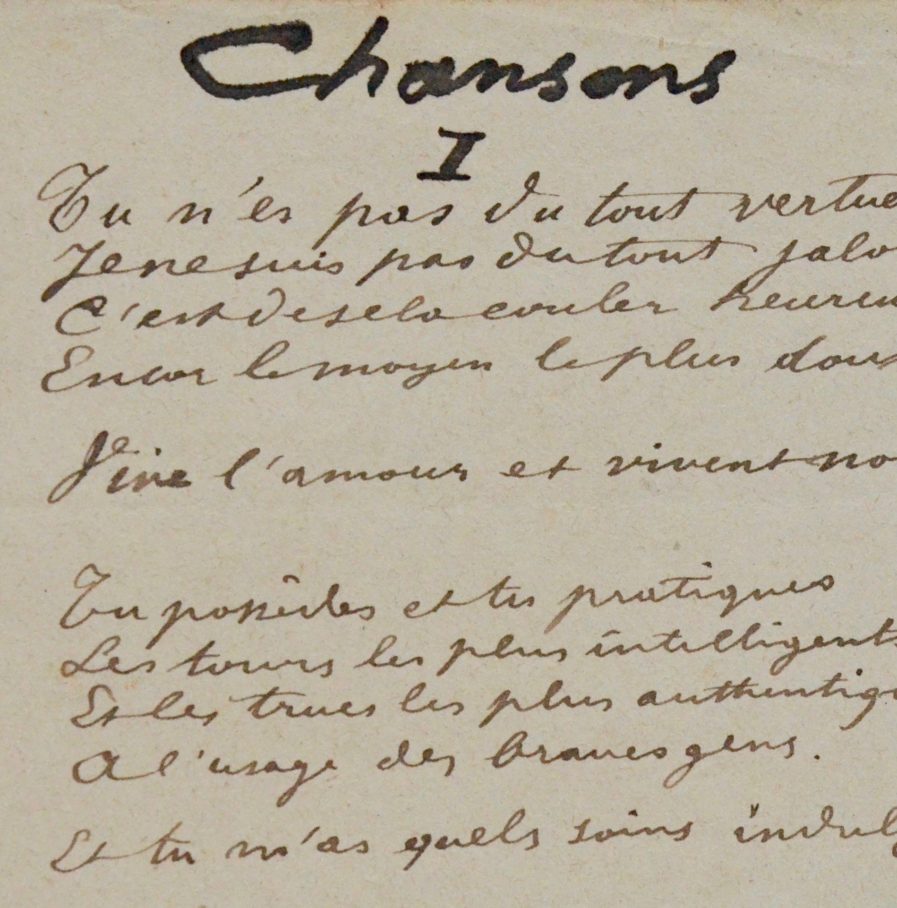 Chansons
I
Tu n'es pas du tout vertue
Je ne suis pas du tout jalo
C'est de se la couler heureu
Encor le moyen le plus doux
Vive l'amour et vivent no
Tu possèdes et tu pratiques
Les tours les plus intelligents
Et les trucs les plus authentiqu
A l'usage des braves gens.
Et tu m'as quels soins indulg